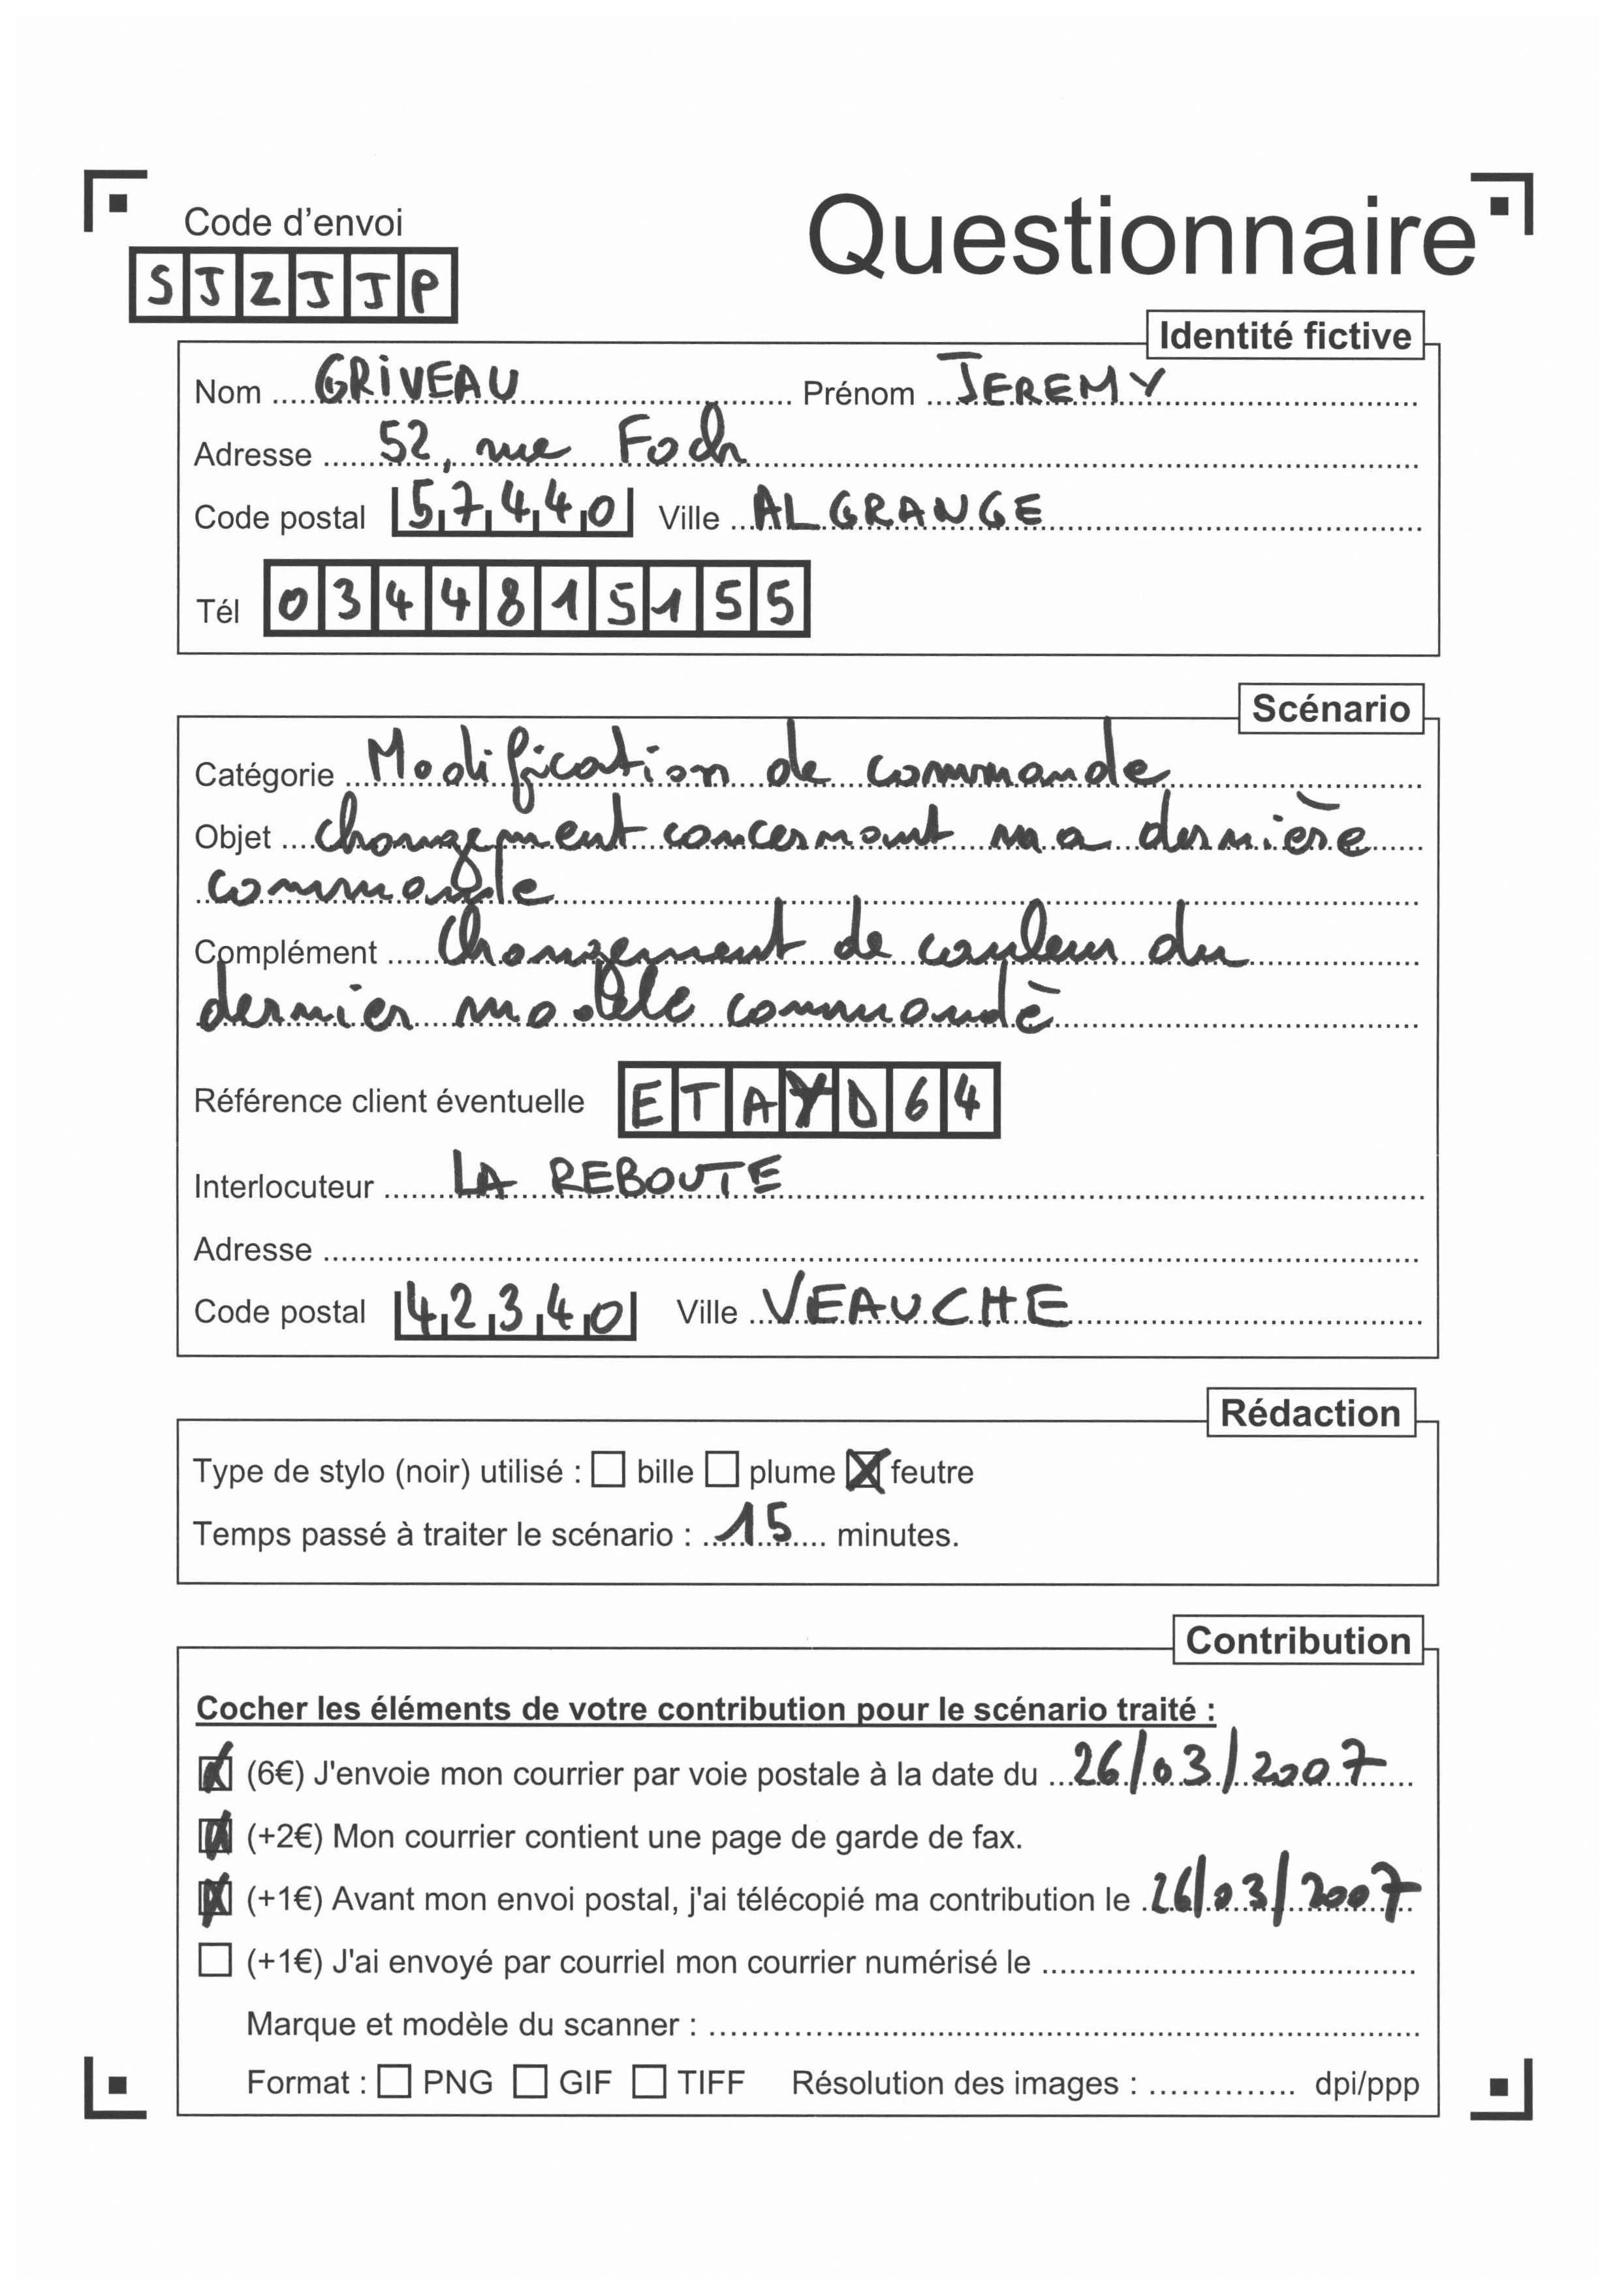 Code d'envoi
Questionnaire
SJZJJP
Identité fictive
Nom GRIVEAU Prénom JEREMY
Adresse 52, rue Foch
Code postal 57440 Ville ALGRANGE
Tél 0344815155
Scénario
Catégorie Modification de commande
Objet changement concernant ma dernière
commande
Complément Changement de couleur du
dernier modèle commandé
Référence client éventuelle ETAYD64
Interlocuteur LA REBOUTE
Adresse
Code postal 42340 Ville VEAUCHE
Rédaction
Type de stylo (noir) utilisé : bille plume feutre
Temps passé à traiter le scénario : 15 minutes.
Contribution
Cocher les éléments de votre contribution pour le scénario traité :
(6€) J'envoie mon courrier par voie postale à la date du 26/03/2007
(+2€) Mon courrier contient une page de garde de fax.
(+1€) Avant mon envoi postal, j'ai télécopié ma contribution le 26/03/2007
(+1€) J'ai envoyé par courriel mon courrier numérisé le
Marque et modèle du scanner :
Format : PNG GIF TIFF Résolution des images : dpi/ppp